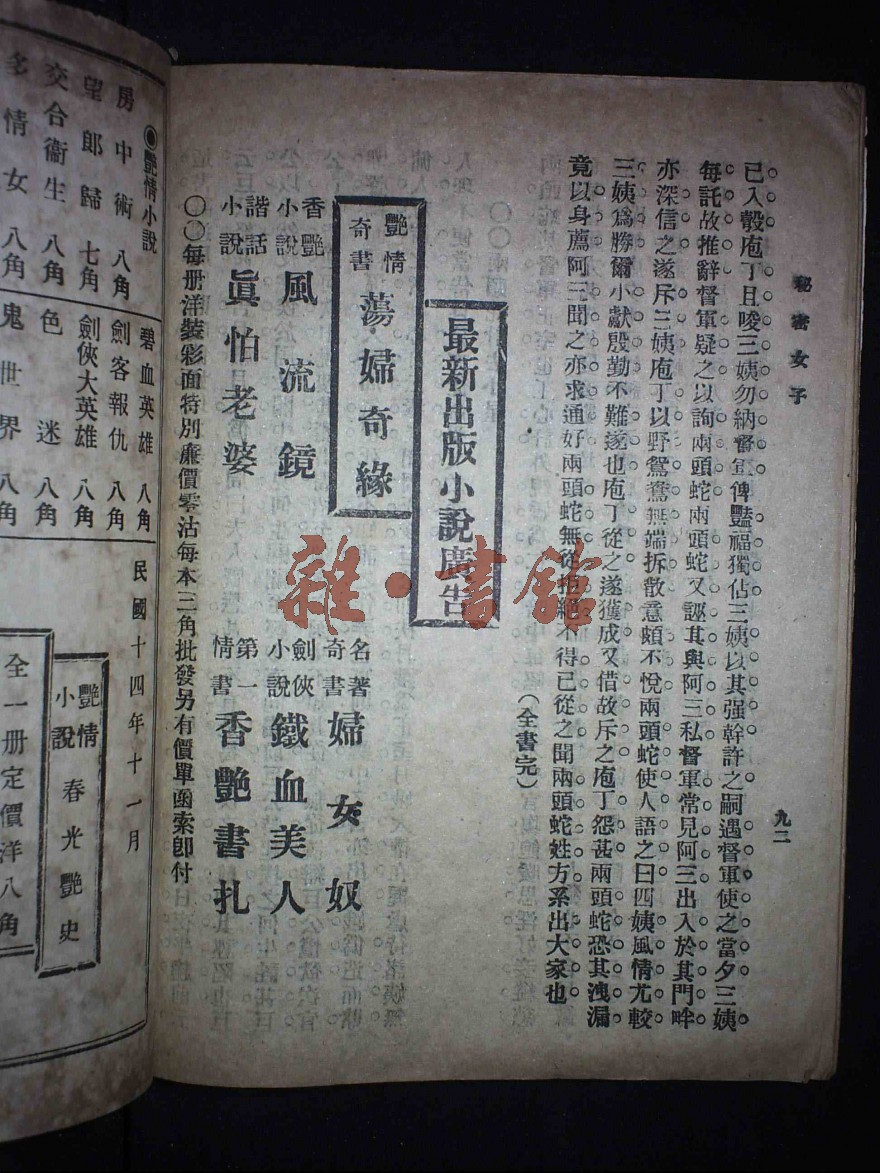 秘密女子
九二
已入彀庖丁且唆三姨勿納督軍俾豔福獨佔三姨以其强幹許之嗣遇督軍使之當夕三姨
每託故推辭督軍疑之以詢兩頭蛇兩頭蛇又誣其與阿三私督軍常見阿三出入於其門畔
亦深信之遂斥三姨庖丁以野鴛鴦無端拆散意頗不悅兩頭蛇使人語之曰四姨風情尤較
三姨爲勝爾小獻殷勤不難遂也庖丁從之遂獲成又借故斥之庖丁怨甚兩頭蛇恐其洩漏
竟以身薦阿三聞之亦求通好兩頭蛇無從拒絕不得已從之聞兩頭蛇姓方系出大家也
(全書完)
最新出版小說廣告
艷情奇書 蕩婦奇緣
香艷小說 風流鏡
諧話小說 眞怕老婆
名著奇書 婦女奴
劍俠小說 鐵血美人
第一情書 香艷書扎
〇〇每册洋裝彩面特別廉價零沽每本三角批發另有價單函索卽付
雜·書館
◉艷情小說
房中術 八角
望郎歸 七角
交合衞生 八角
多情女 八角
碧血英雄 八角
劍客報仇 八角
劍俠大英雄 八角
色迷 八角
鬼世界 八角
民國十四年十一月
艷情小說 春光艷史
全一册定價洋八角